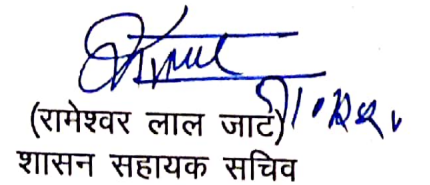 (रामेश्वर लाल जाट)
शासन सहायक सचिव